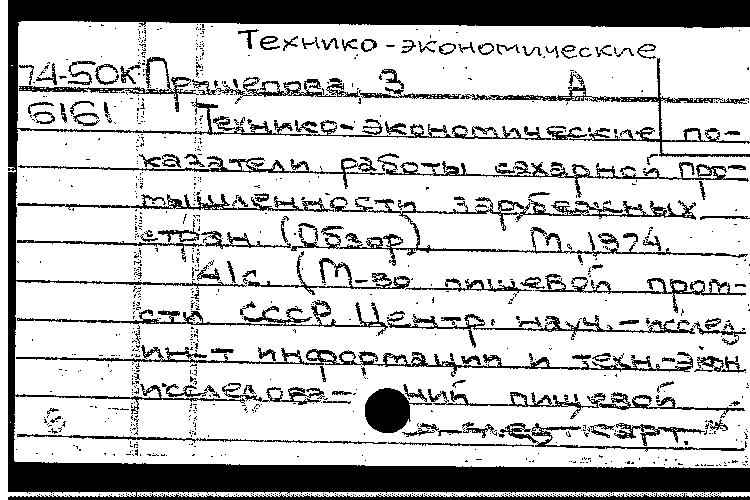 Технико-экономические
74-50К Прищепова, З А
6161 Технико-экономические по-
казатели работы сахарной про-
мышленности зарубежных
стран. (Обзор). М., 1974.
41с. (М-во пищевой пром-
сти СССР. Центр. науч.-исслед
ин-т информации и техн.-экон
исследова- ний пищевой
след. карт.